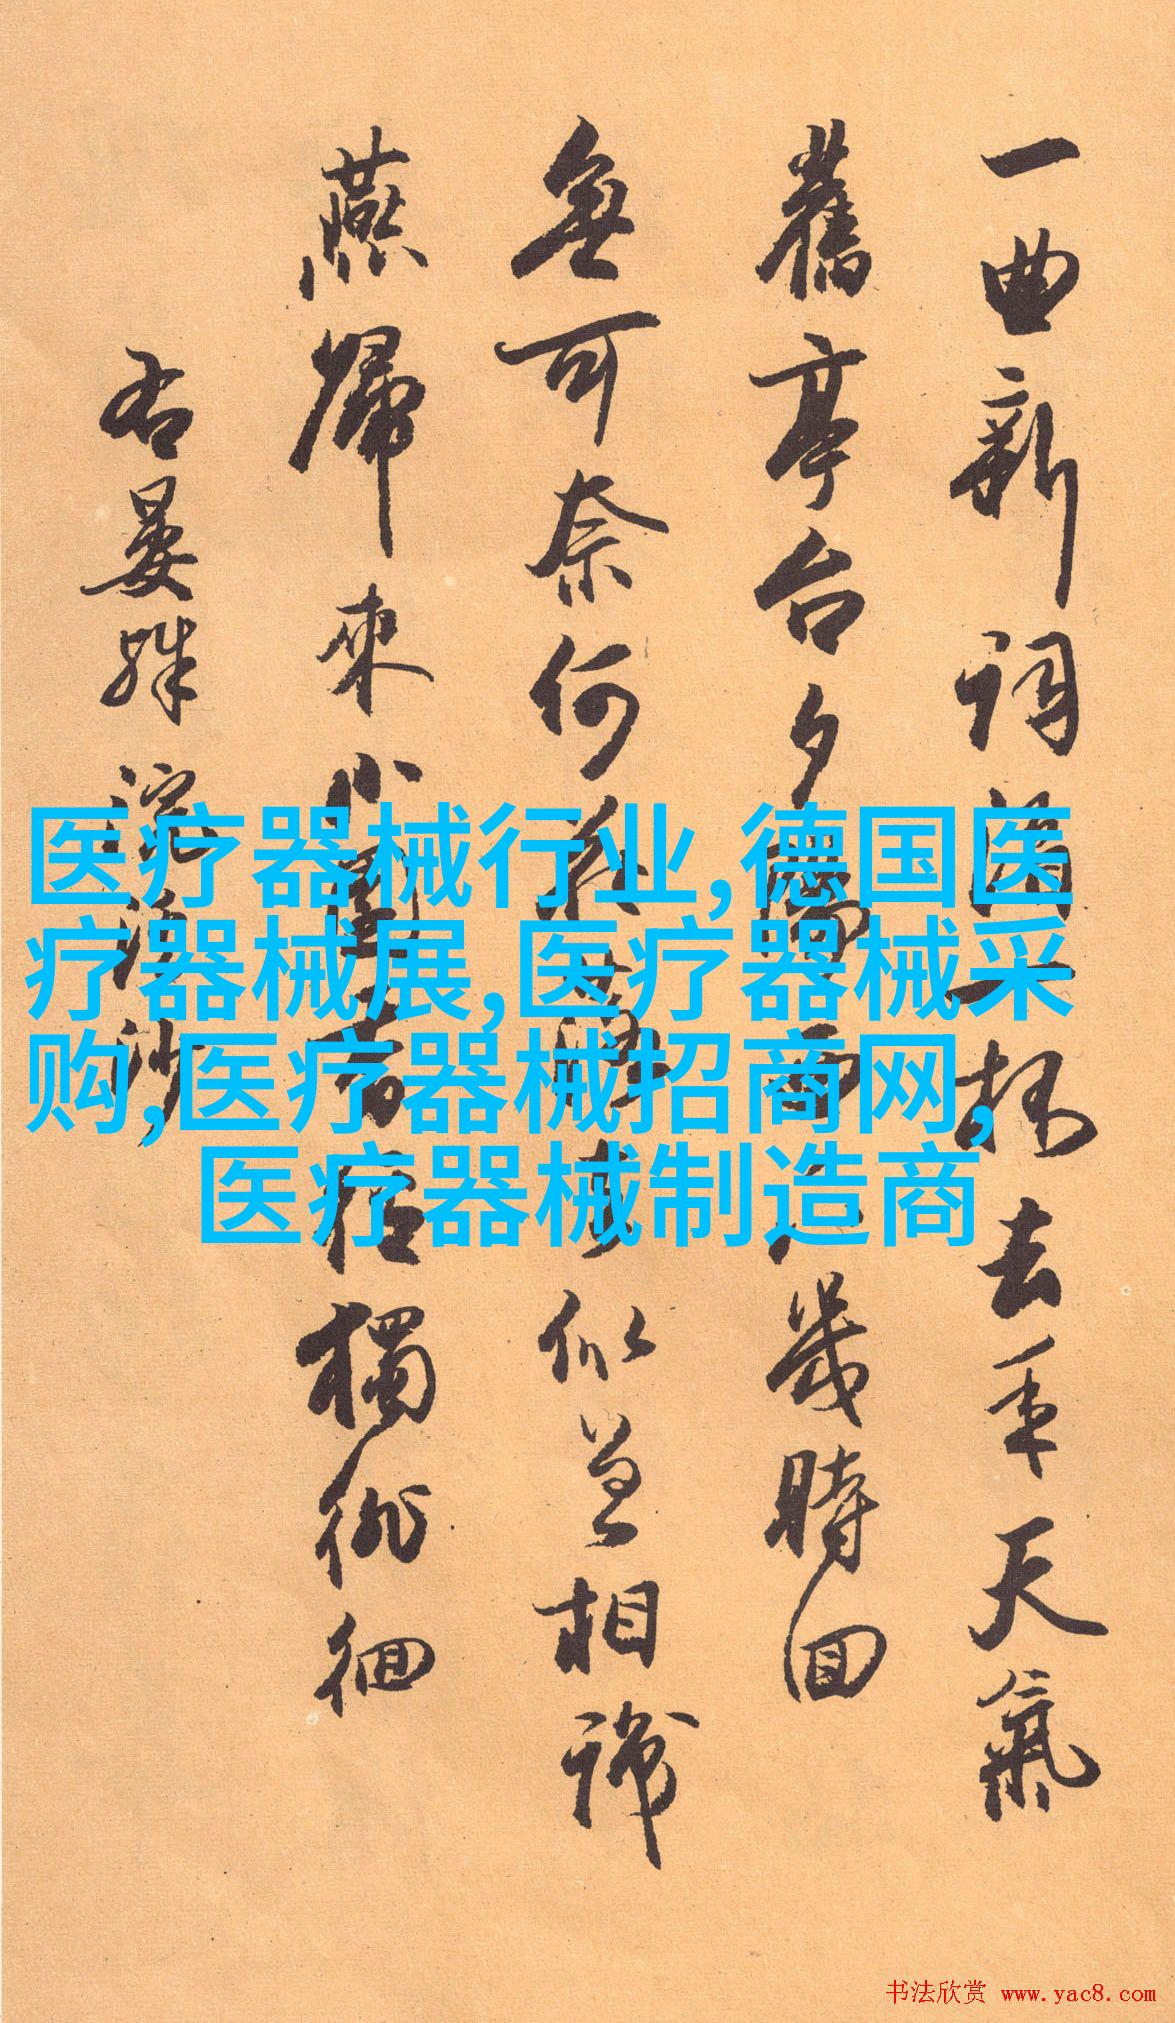 一曲新詞酒一杯去年天氣
舊亭台夕陽西下幾時回
無可奈何花落去似曾相識
燕歸來小園香徑獨徘徊
右晏殊浣溪沙
医疗器械行业,德国医
疗器械展,医疗器械采
购,医疗器械招商网,
医疗器械制造商
书法欣赏 www.yac8.com